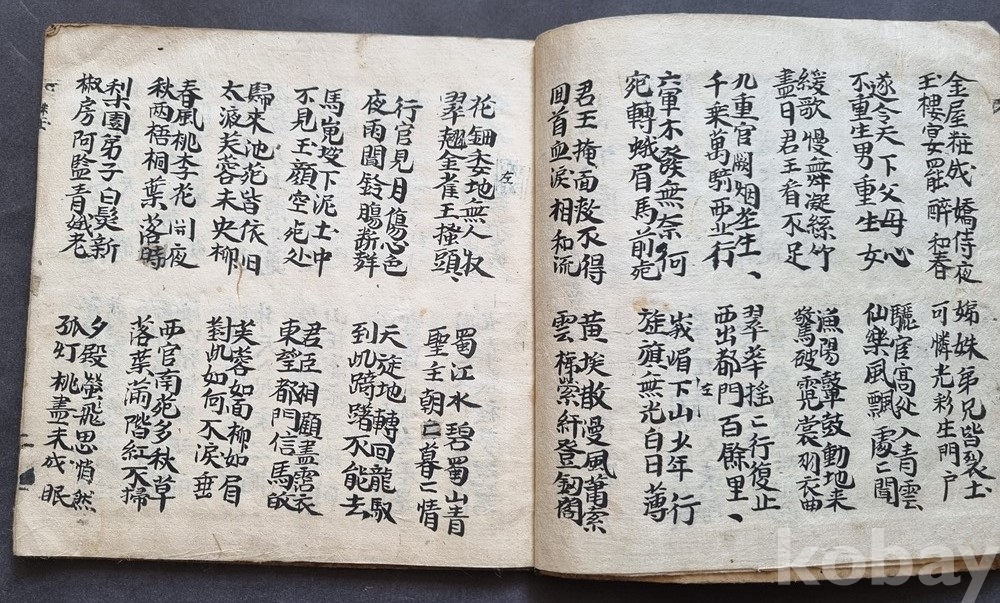 金屋粧成嬌侍夜
玉樓宴罷醉和春
姊妹弟兄皆裂土
可憐光彩生門戶
遂令天下父母心
不重生男重生女
驪官高处入青雲
仙樂風飄處〻聞
緩歌慢舞凝絲竹
盡日君王看不足
漁陽鼙鼓動地来
驚破霓裳羽衣曲
九重官闕烟尘生、
千乘萬騎西北行
翠華揺〻行復止
西出都門百餘里、
六軍不發無奈何
宛轉蛾眉馬前死
左
峩嵋下山少年行
旌旗無光白日薄
君王掩面救不得
回首血淚相和流
黄埃散漫風蕭索
雲棧縈紆登劔閣
左
花鈿委地無人収
翠翹金雀王搔頭、
蜀江水碧蜀山青
聖主朝〻暮〻情
行官見月傷心色
夜雨聞鈴腸断聲
天旋地轉回龍馭
到此躊躇不能去
馬嵬坡下泥土中
不見玉顔空死处
君臣相顧盡霑衣
東望都門信馬皈
歸来池苑皆依旧
太液芙蓉未央柳
芙蓉如面柳如眉
對此如何不淚垂
春風桃李花開夜
秋雨梧桐葉落時
西官南苑多秋草
落葉滿階紅不掃
梨園弟子白髮新
椒房阿監青娥老
夕殿螢飛思悄然
孤灯桃盡未成眠
kobay